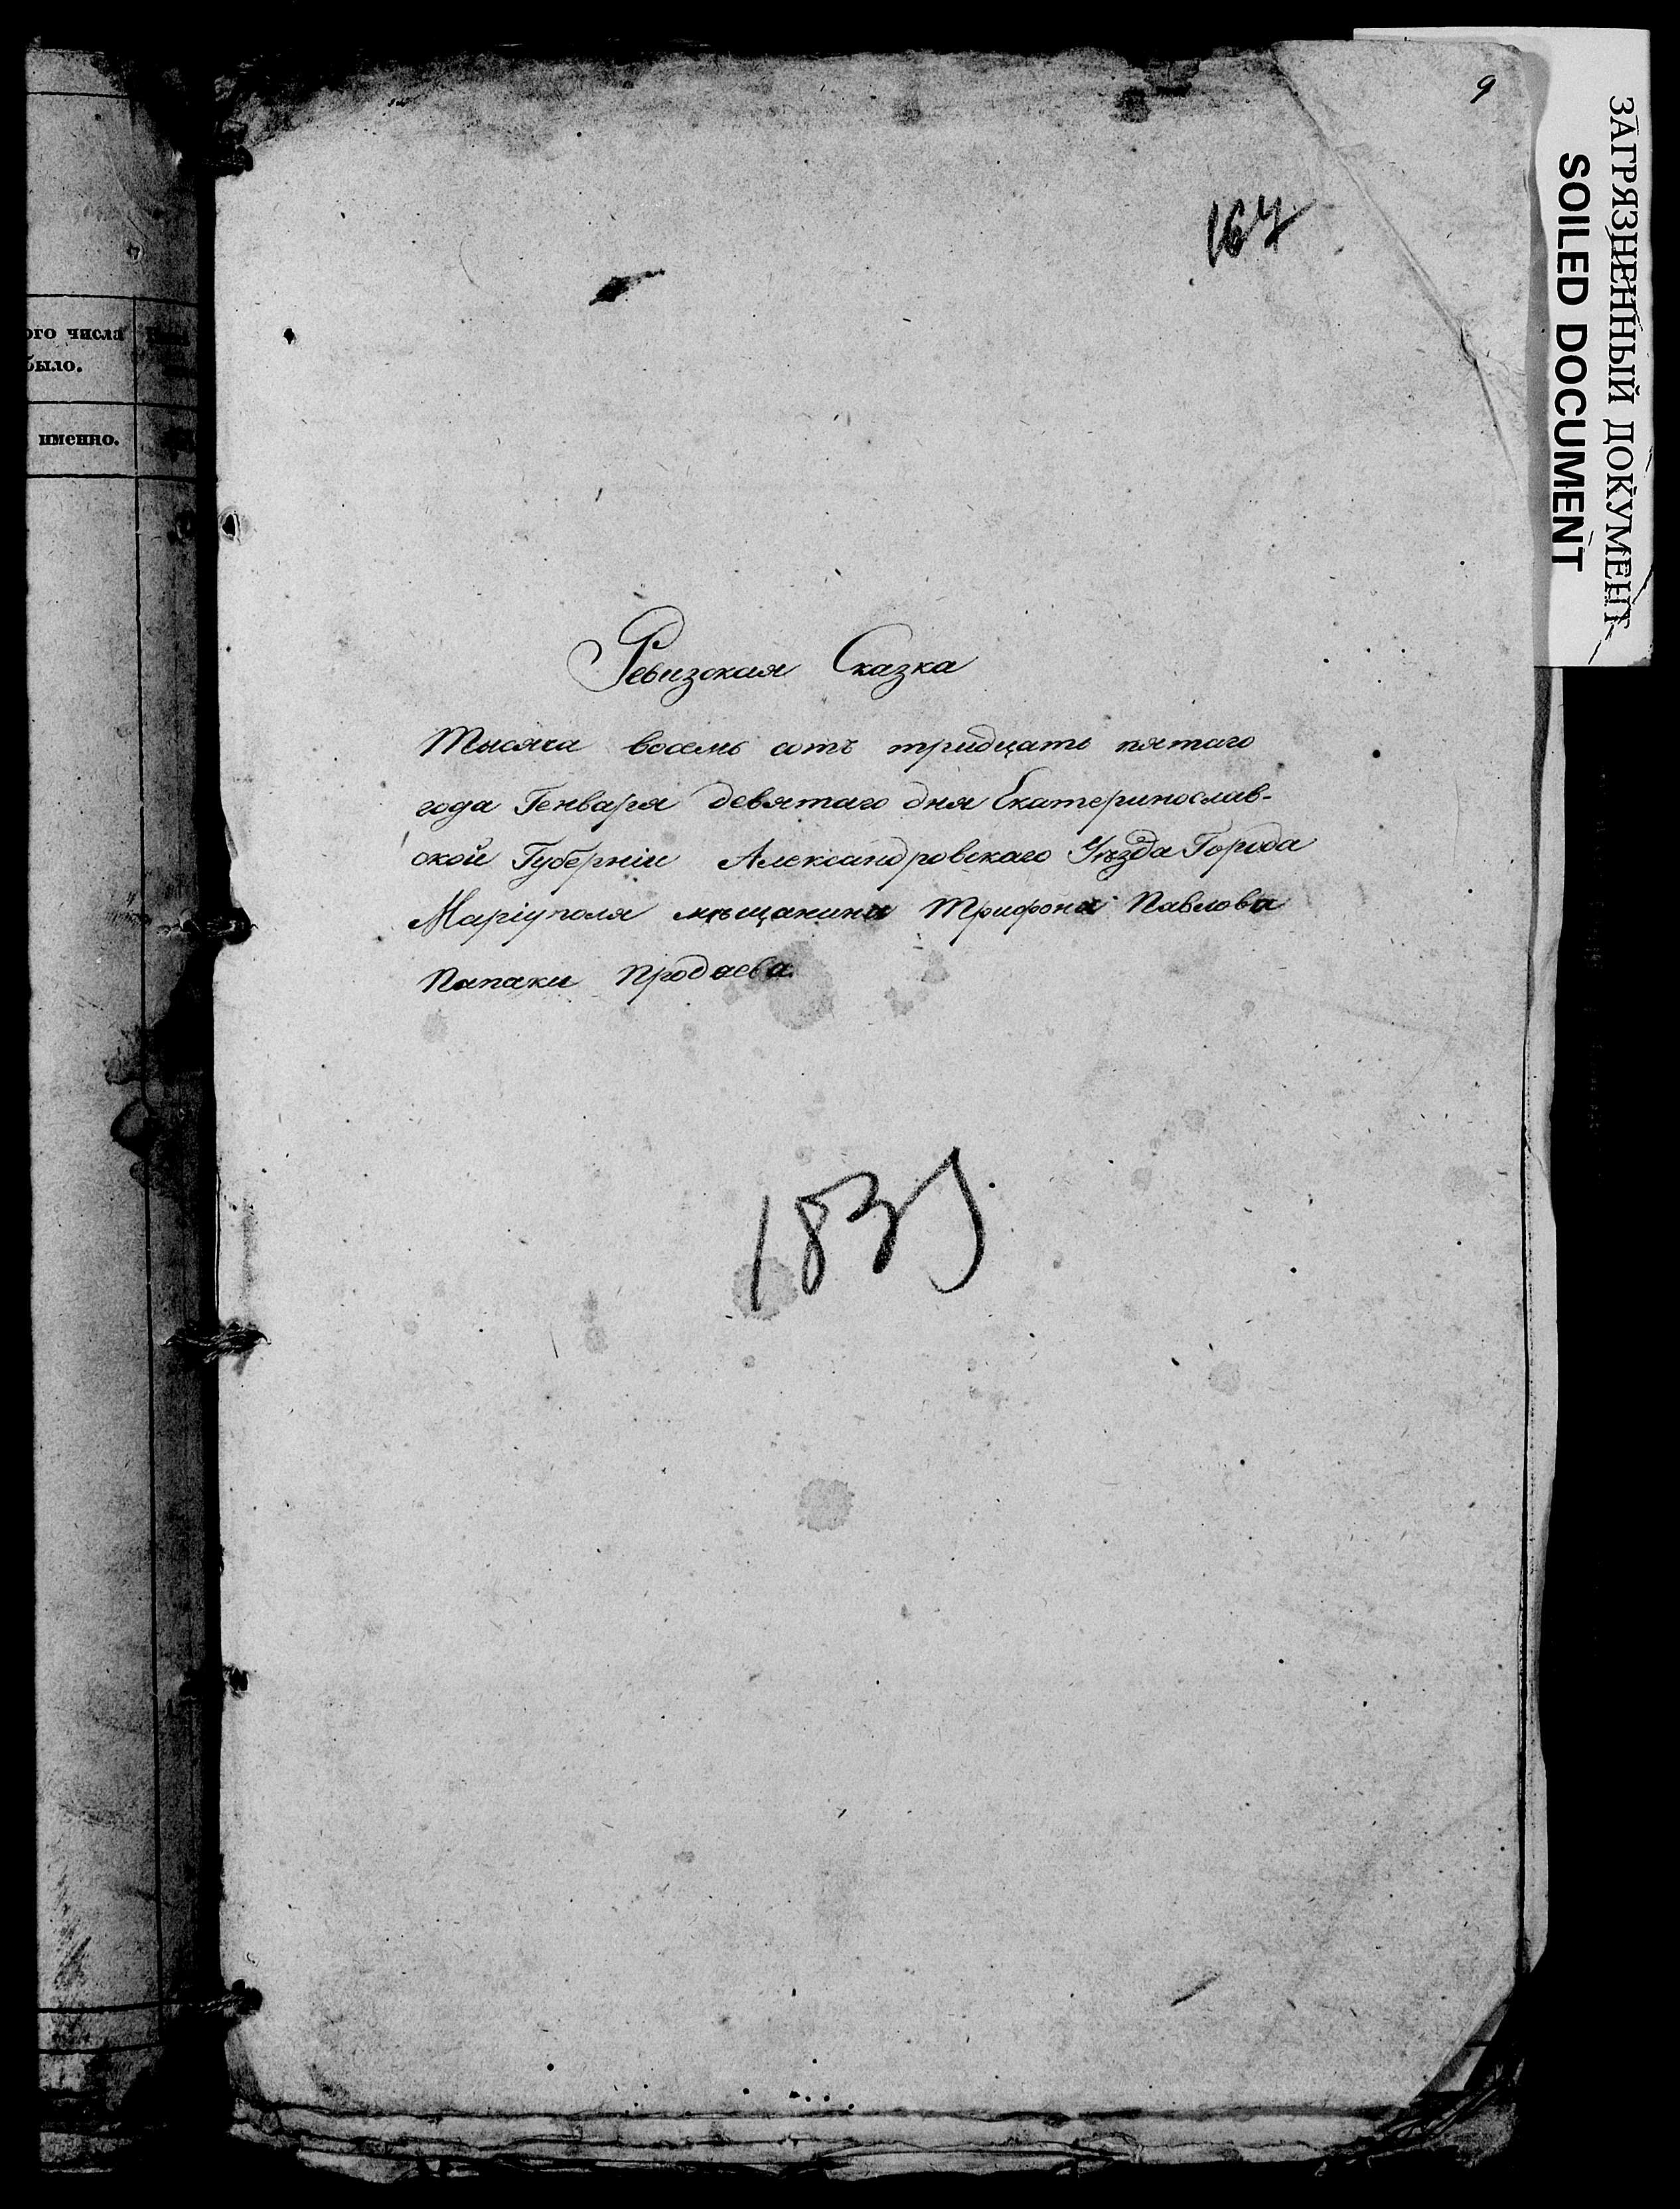 9
ЗАГРЯЗНЕННЫЙ ДОКУМЕНТ
SOILED DOCUMENT
167
ого числа
было.
именно.
Ревизская Сказка
Тысяча восемь сотъ тридцать пятаго
года Генваря девятаго дня Екатеринослав-
ской Губерніи Александровскаго Уѣзда Города
Маріуполя мѣщанина Трифона Павлова
Папаки Продаева
1835